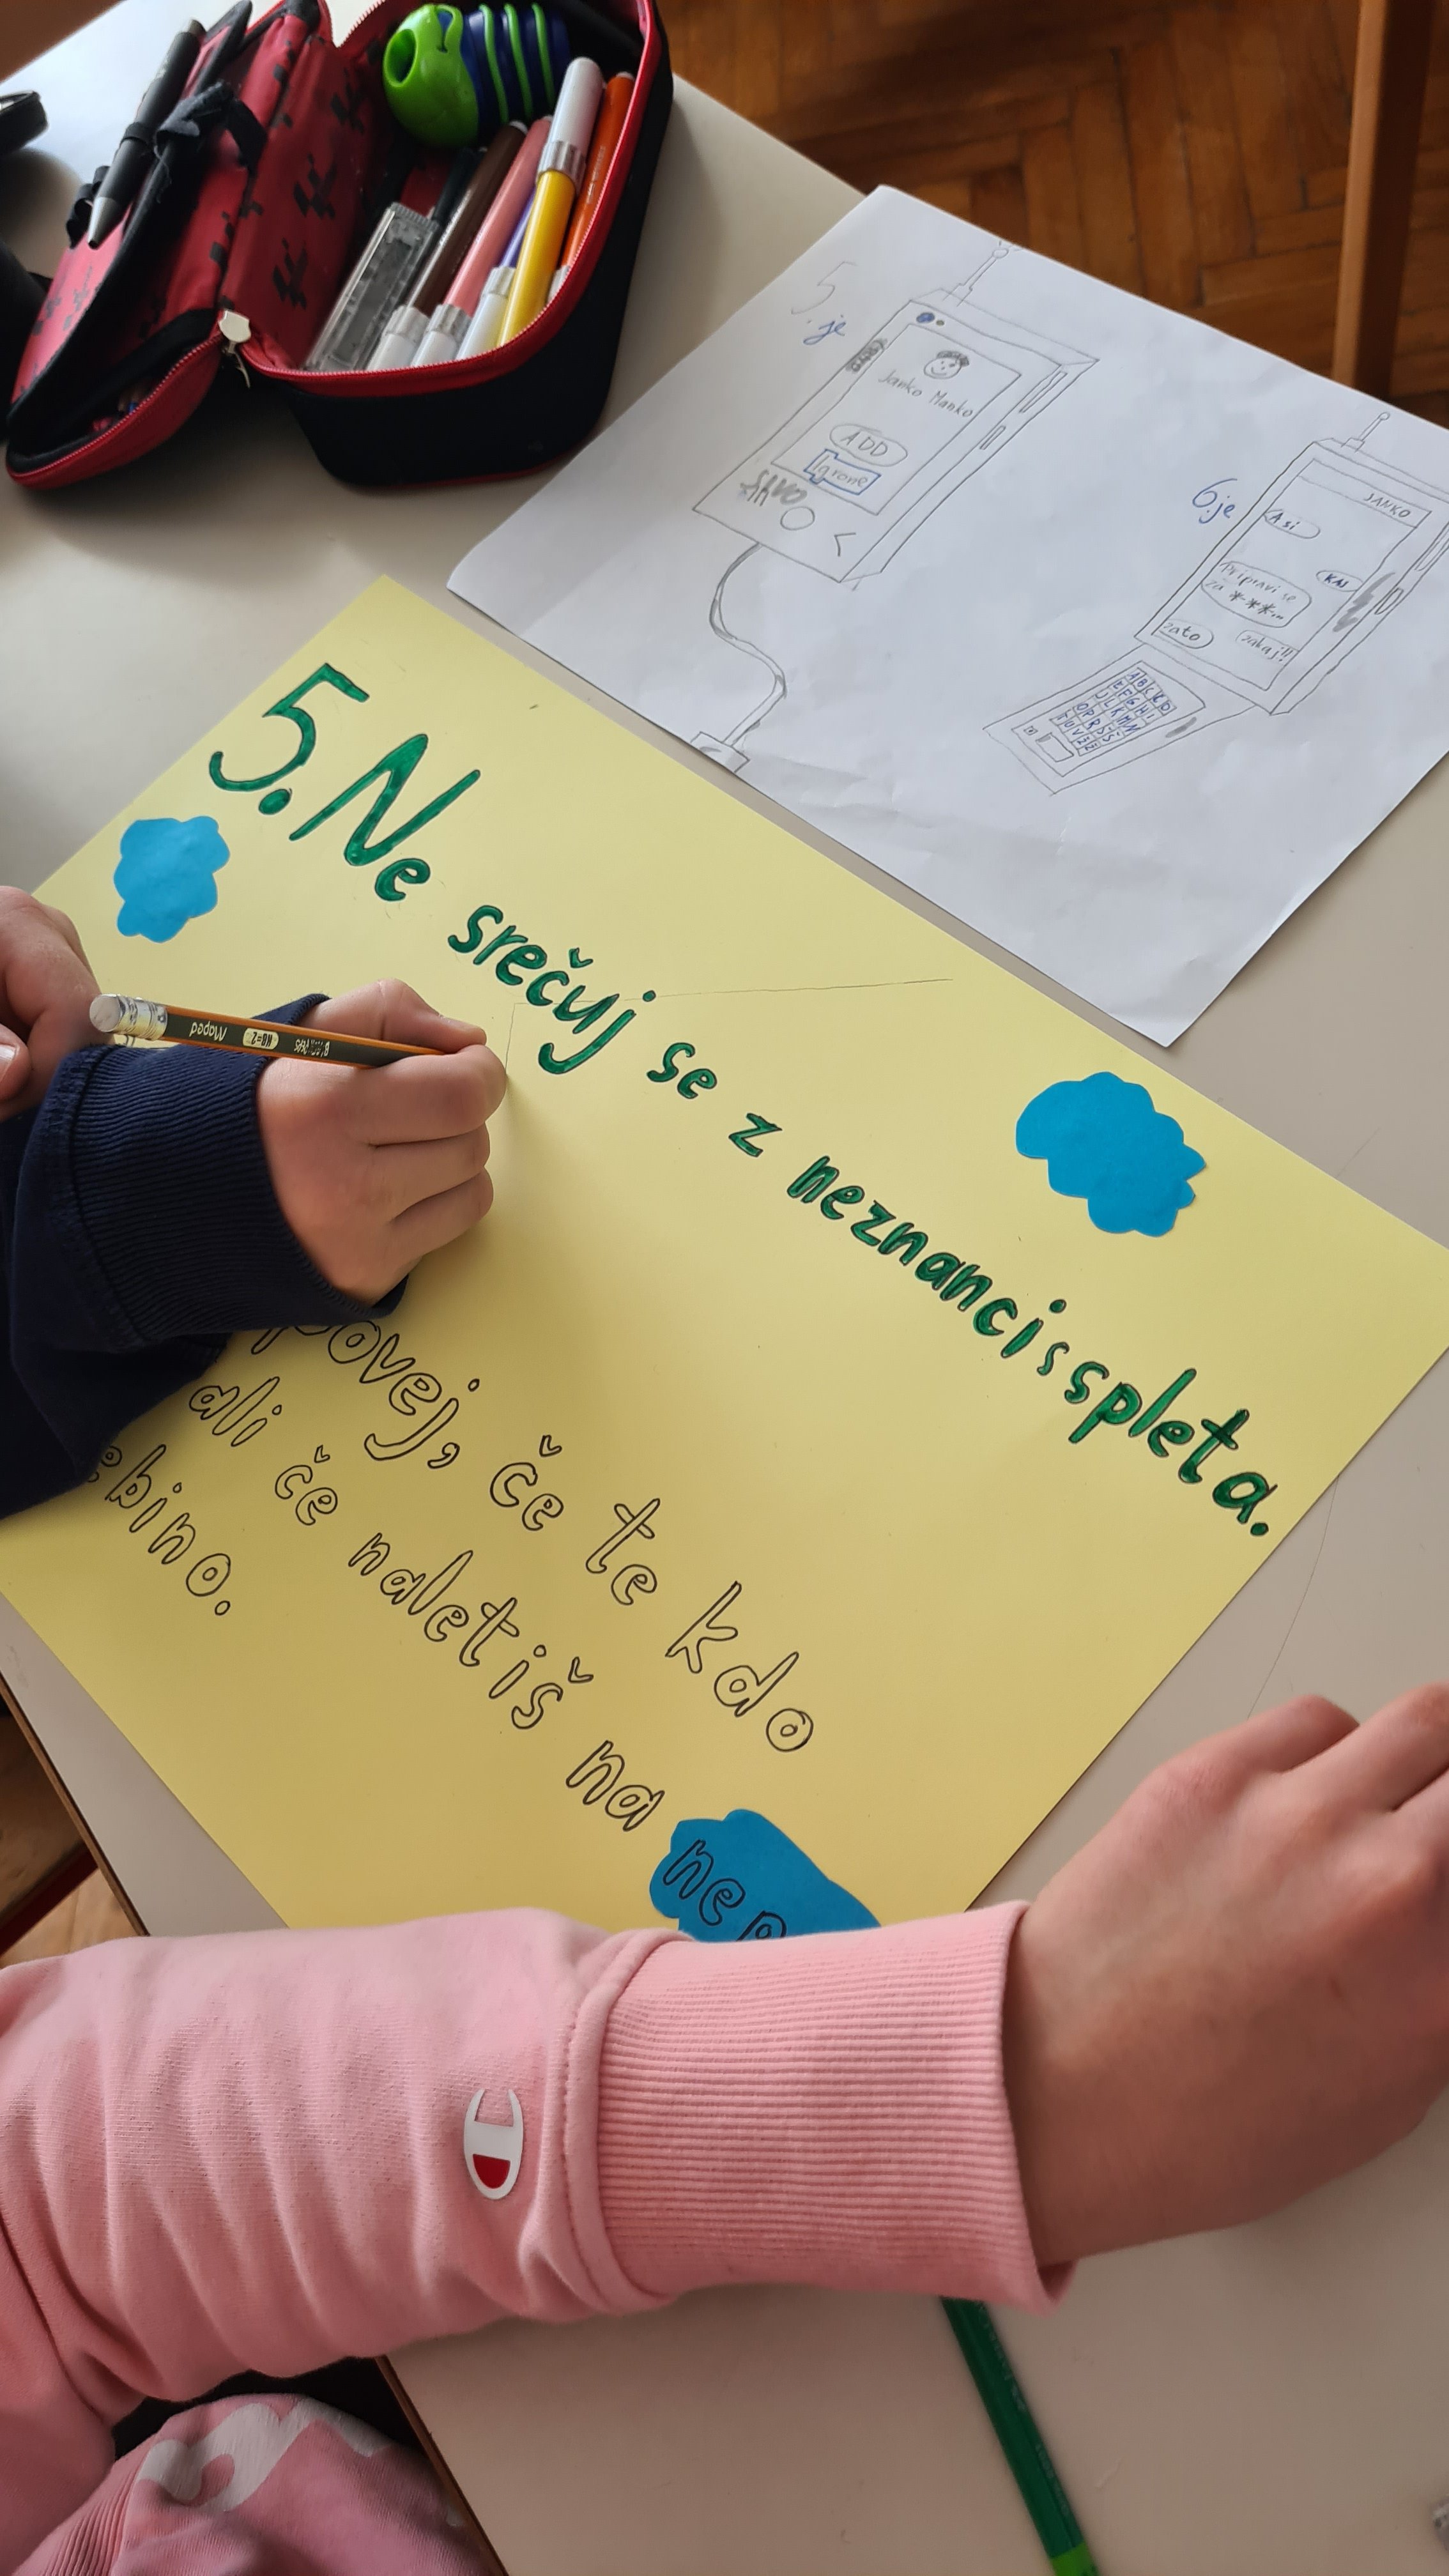 5. je
Janko Manko
ADD
Ignone
6. je
JANKO
A si
KAJ
Pripravi se
za *-**...
zakaj!!
zato
A B C Č D
E F G H I
J K L M N
O P R S Š
T U V Z Ž
5. Ne srečuj se z neznanci s spleta.
povej, če te kdo
ali če naletiš na nep
ebino.
Maped
HB=2